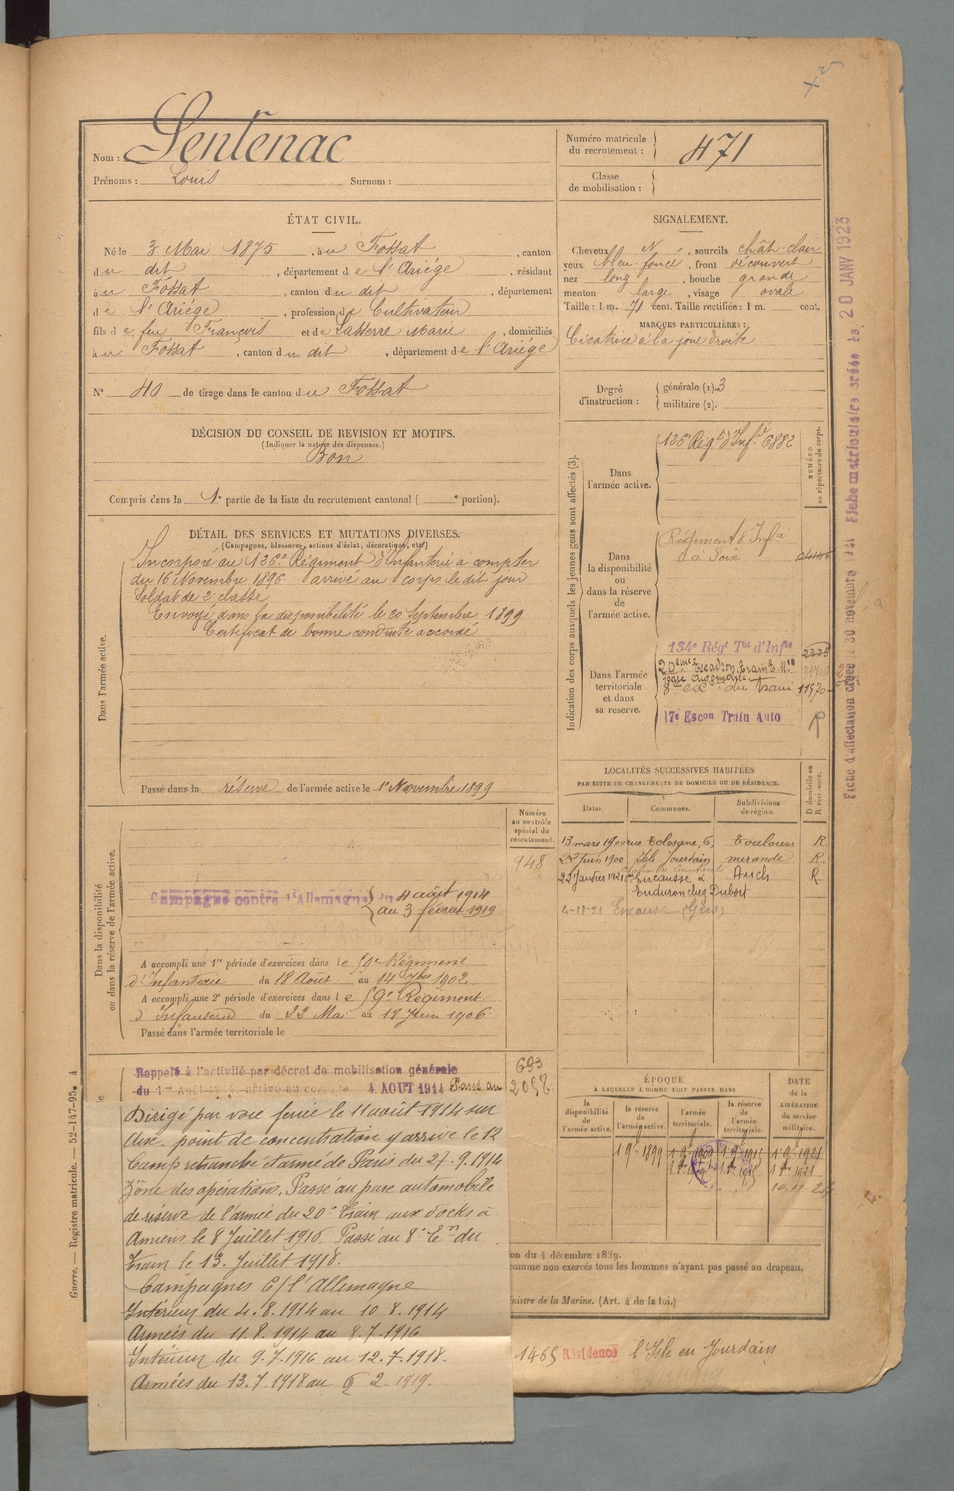 Nom : Sentenac
Prénoms : Louis Surnom :
Numéro matricule du recrutement : 471
Classe de mobilisation :
ÉTAT CIVIL.
Né le 3 Mai 1875, à u Fossat, canton
d u dit, département d e l'Ariége, résidant
à u Fossat, canton d u dit, département
d e l'Ariége, profession d e Cultivateur
fils d e feu François et d e Lasserre Marie, domiciliés
à u Fossat, canton d u dit, département d e l'Ariége
N° 40 de tirage dans le canton d u Fossat
SIGNALEMENT.
Cheveux N, sourcils chât-clair
yeux bleu-foncé, front découvert
nez long, bouche grande
menton large, visage ovale
Taille : 1 m. 71 cent. Taille rectifiée : 1 m. cent.
MARQUES PARTICULIÈRES :
Cicatrice à la joue droite
Degré d'instruction : générale (1). 3
militaire (2).
DÉCISION DU CONSEIL DE REVISION ET MOTIFS.
(Indiquer la nature des dispenses.)
Bon
Compris dans la 1e partie de la liste du recrutement cantonal ( e portion).
DÉTAIL DES SERVICES ET MUTATIONS DIVERSES.
(Campagnes, blessures, actions d'éclat, décorations, etc.)
Dans l'armée active.
Incorporé au 126e Régiment d'Infanterie à compter
du 16 Novembre 1896 arrivé au corps le dit jour
Soldat de 2e classe
Envoyé dans la disponibilité le 20 Septembre 1899
Certificat de bonne conduite accordé
Passé dans la réserve de l'armée active le 1er Novembre 1899
Indication des corps auxquels les jeunes gens sont affectés (3).
NUMÉRO au répertoire du corps.
Dans l'armée active.
126e Regt d'Infie 6882
Dans la disponibilité ou dans la réserve de l'armée active.
Régiment d'Infie
à Foix
Dans l'armée territoriale et dans sa réserve.
134e Régt Tal d'Infie
20ème Escadron Train
8e esc du train 11570
17e Escon Train Auto R
LOCALITÉS SUCCESSIVES HABITÉES
PAR SUITE DE CHANGEMENTS DE DOMICILE OU DE RÉSIDENCE.
Dates. Communes. Subdivisions de région. D domicile ou R résidence.
Tolosane, 6, Toulouse R.
22 Juin 1900 Isle Jourdain mirande R.
22 Janvier 1921 Encausse à Auch R
Enduron chez Dubort
4-11-21 Encausse (Gers)
Dans la disponibilité ou dans la réserve de l'armée active.
Numéro au contrôle spécial du recrutement.
948
Campagne contre l'Allemagne du 4 août 1914
au 3 février 1919
A accompli une 1re période d'exercices dans l e 59e Régiment
d'Infanterie du 18 Août au 14 7bre 1902.
A accompli une 2e période d'exercices dans l e 59e Régiment
d'Infanterie du 22 Mai au 18 Juin 1906
Passé dans l'armée territoriale le
Rappelé à l'activité par décret de mobilisation générale
du 1er Août 1914, arrivé au corps le 4 AOUT 1914 Passé au
693
Dirigé par voie ferrée le 11 août 1914 sur
Aix. point de concentration y arrivé le 12
Camp retranché et armé de Paris du 27.9.1914
Zône des opérations. Passé au parc automobile
de réserve de l'armée du 20e Train aux docks à
Amiens le 8 Juillet 1916 Passé au 8e En du
Train le 13. Juillet 1918.
Campagnes C/ l'Allemagne
Intérieur du 4.8.1914 au 10.8.1914
Armées du 11.8.1914 au 8.7.1916
Intérieur du 9.7.1916 au 12.7.1918.
Armées du 13.7.1918 au 2-1919.
ÉPOQUE
À LAQUELLE L'HOMME DOIT PASSER DANS
DATE de la LIBÉRATION du service militaire.
la disponibilité de l'armée active. la réserve de l'armée active. l'armée territoriale. la réserve de l'armée territoriale.
1 9bre 1899 1 9bre 1909 1 9bre 1915 1 9bre 1921
10.11-24
on du 4 décembre 1889.
comme non exercés tous les hommes n'ayant pas passé au drapeau.
inistre de la Marine. (Art. 4 de la loi.)
1465 Résidence l'Isle en Jourdain
Guerre. — Registre matricule. — 52-147-95. 4
Fiche d'affectation créée le 30 novembre
Fiche matriculaire créée le 20 JANV 1923